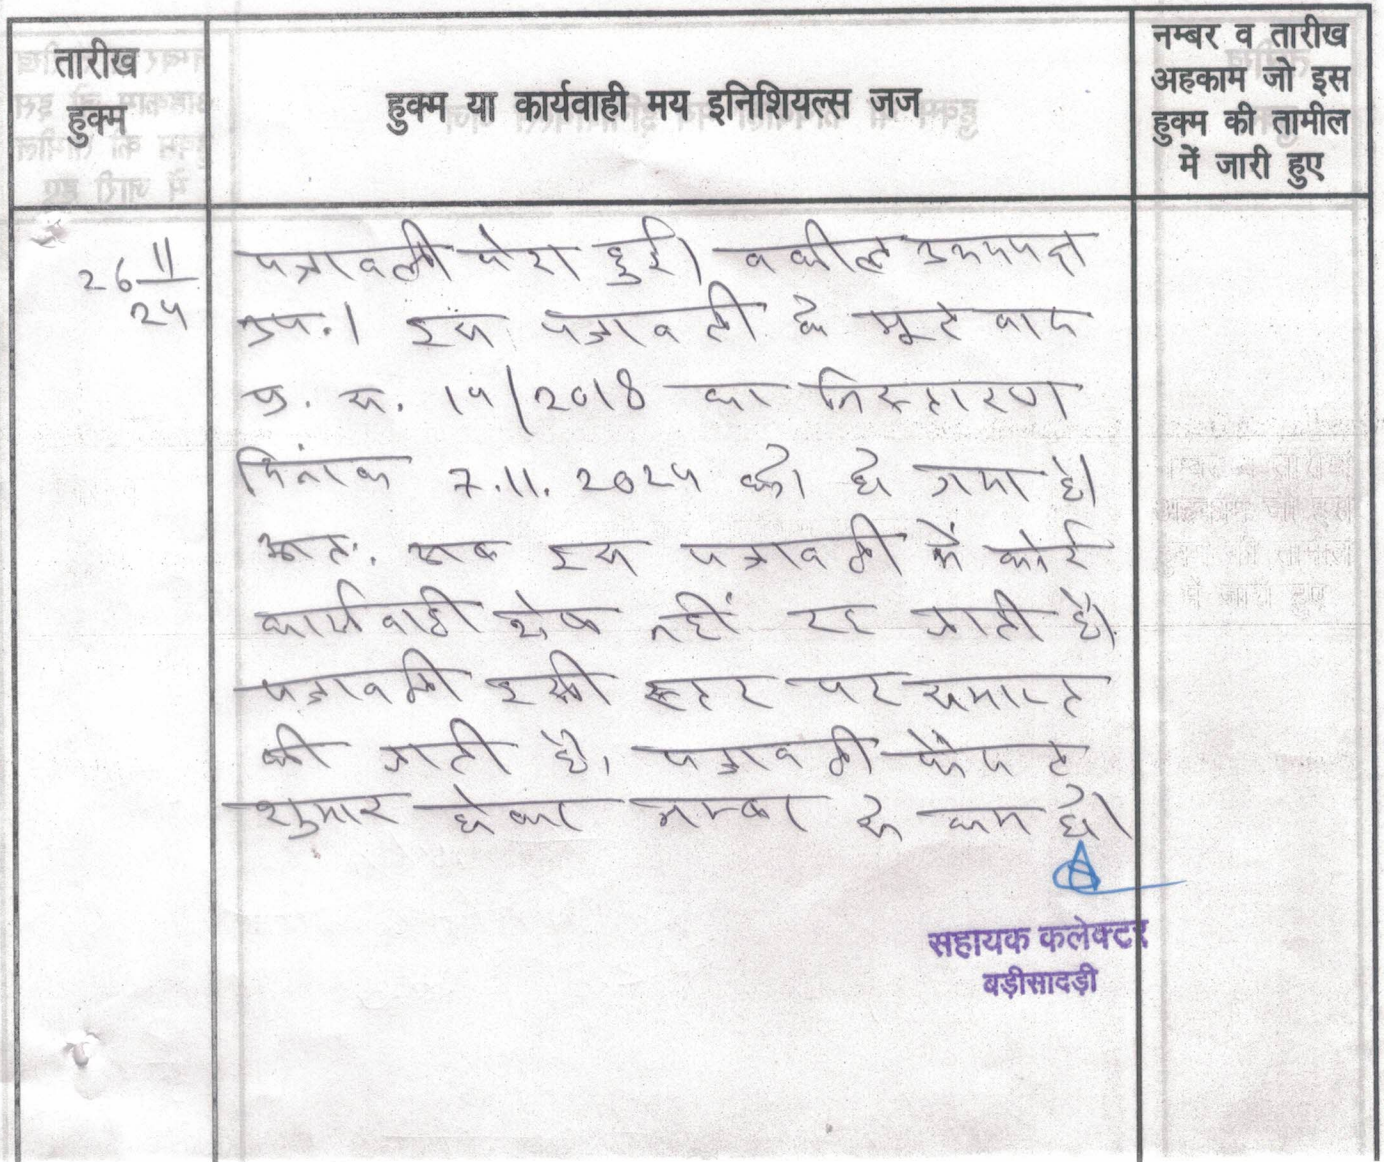 तारीख
हुक्म
हुक्म या कार्यवाही मय इनिशियल्स जज
नम्बर व तारीख
अहकाम जो इस
हुक्म की तामील
में जारी हुए
26 11/24
पत्रावली पेश हुई। वकील उभयपक्ष
उप.। इस पत्रावली के मूल वाद
प्र. स. 14/2018 का निस्तारण
दिनांक 7.11.2024 को हो गया है।
अतः अब इस पत्रावली में कोई
कार्यवाही शेष नहीं रह जाती है।
पत्रावली इसी स्तर पर समाप्त
की जाती है, पत्रावली फैसल
शुमार होकर नम्बर से कम हो।
सहायक कलेक्टर
बड़ीसादड़ी